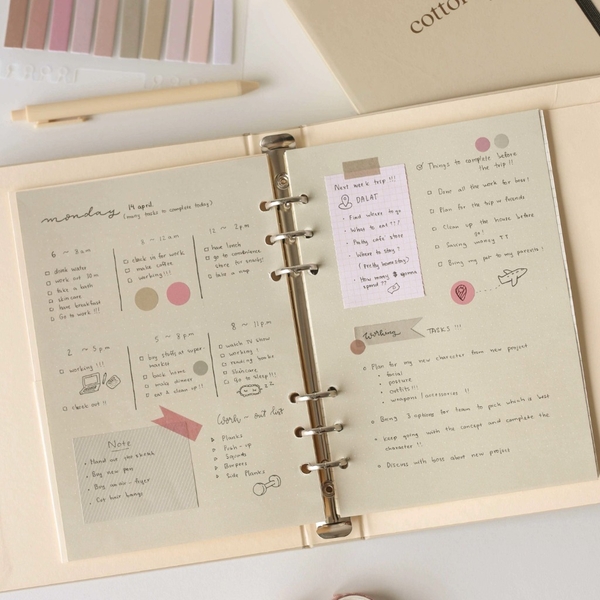 cotton
monday 14 april
(many tasks to complete today)
6 - 8am
drink water
work out 20m
take a bath
skin care
have breakfast
Go to work !!!
8 - 12am
check us for work
make coffee
working !!!
12 - 2pm
have lunch
go to convenience
store for snacks
take a nap
2 - 5pm
working !!!
check out !!
5 - 8pm
buy stuffs at super
market
back home
make dinner
eat & clean up !!
8 - 11pm
watch TV show
working !
reading books
Skincare
Go to sleep !!!
Note
Hand
Buy new pen
Buy
Cut hair bangs
Work - out list
Planks
Push - up
Squats
Burpees
Side Planks
Next week trip !!!
DALAT
Find where to go
Where to eat ???
Pretty cafe' store
Where to stay ?
(pretty homestay)
How many $ gonna
spend ??
Things to complete before
the trip !!
Done all the work for boss !
Plan for the trip w friends
Clean up the house before
go !
Saving money ??
Bring my pet to my parents !
Working TASKS !!!
Plan for my new character from new project
facial
posture
outfits !!!
weapons / accessories !!
Bring 3 options for team to pick which is best
Keep going with the concept and complete the
character !!
Discuss with boss about new project